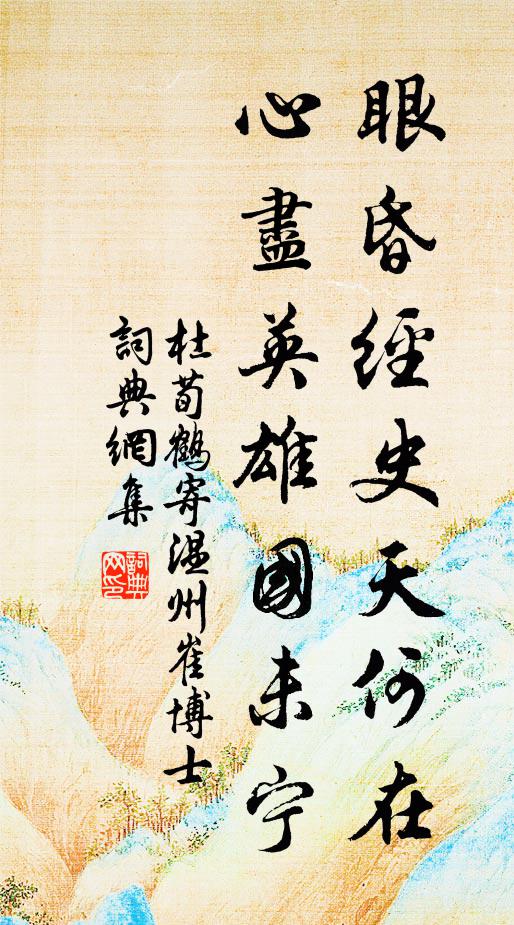 眼昏經史天何在
心盡英雄國未宁
杜荀鶴寄温州崔博士
詞典網集
詞典
网印